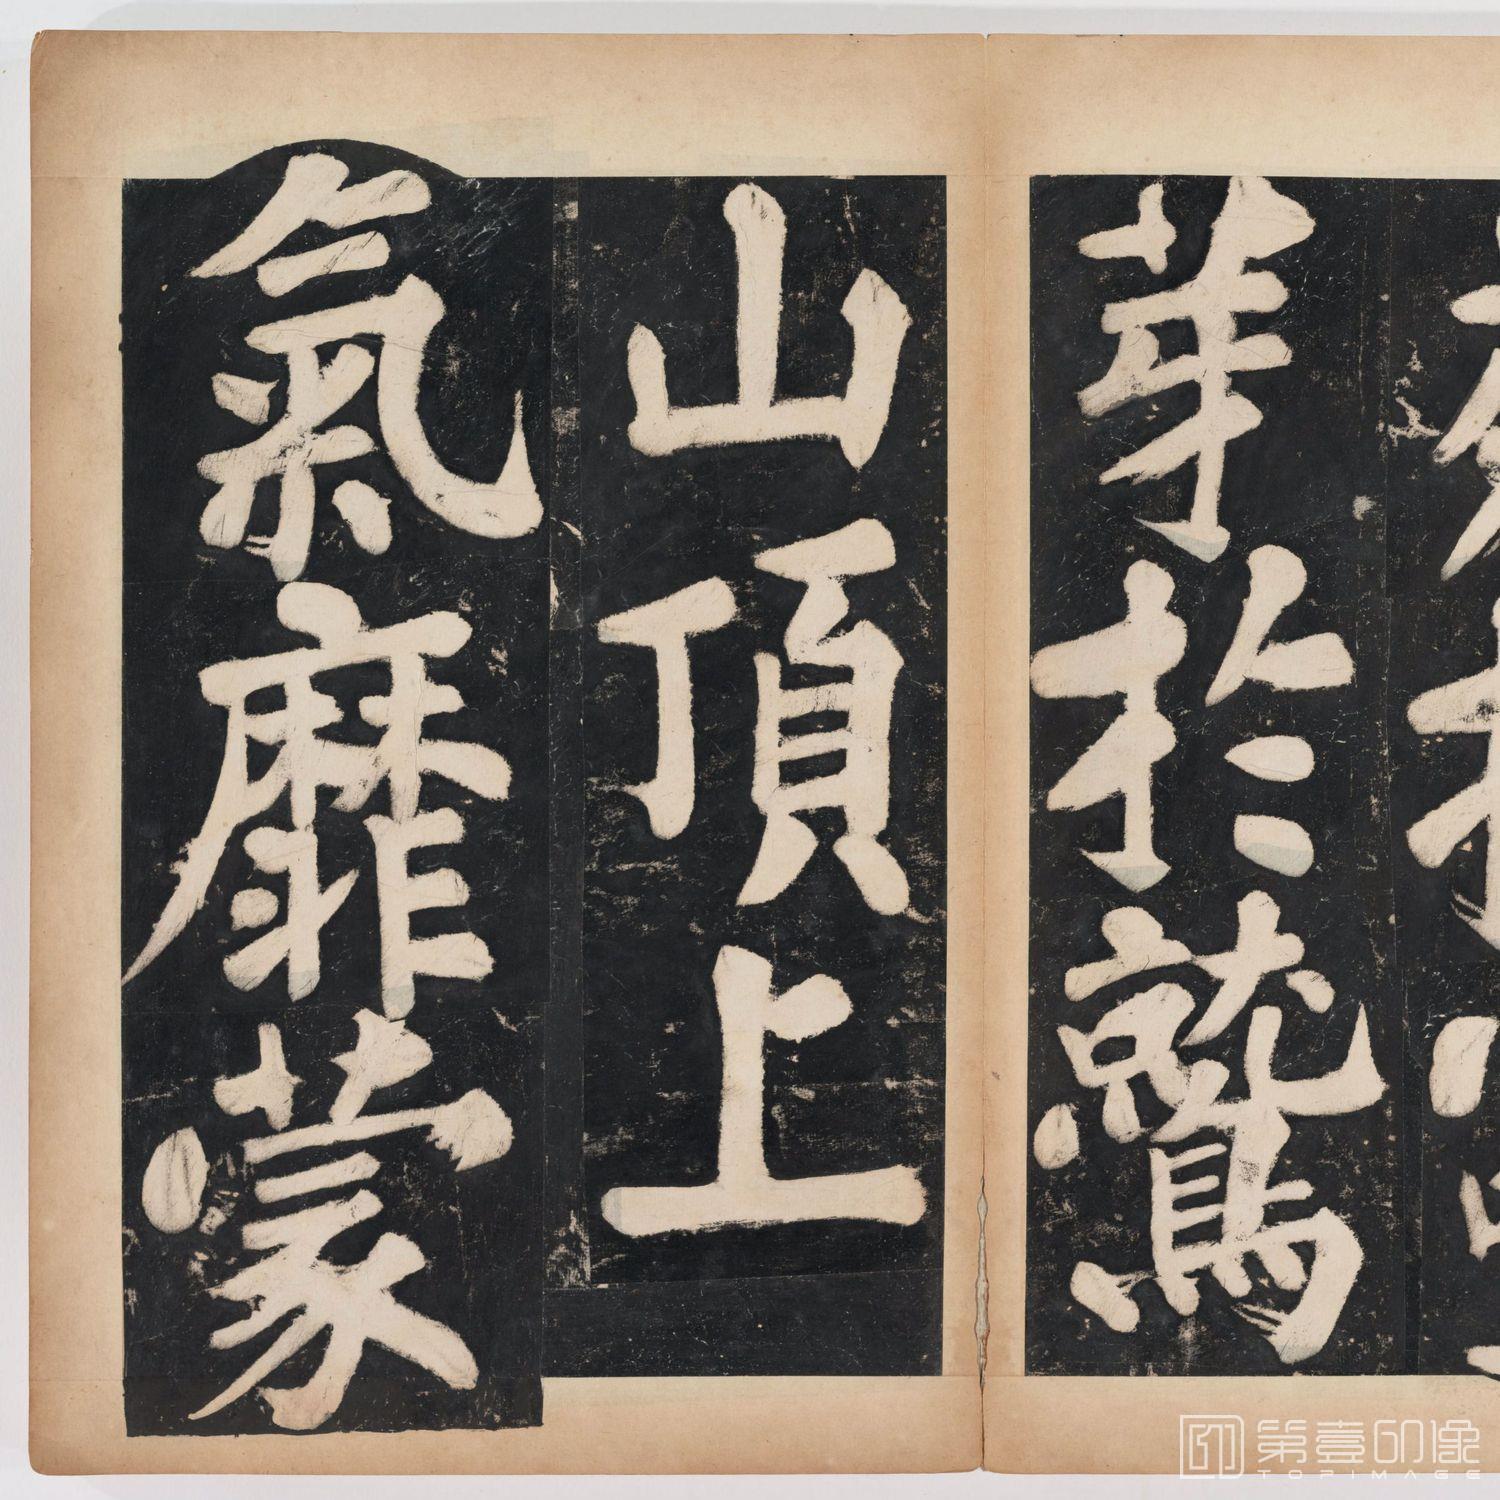 華於鷲
山頂上
氣靡蒙
第壹印像
TOPIMAGE